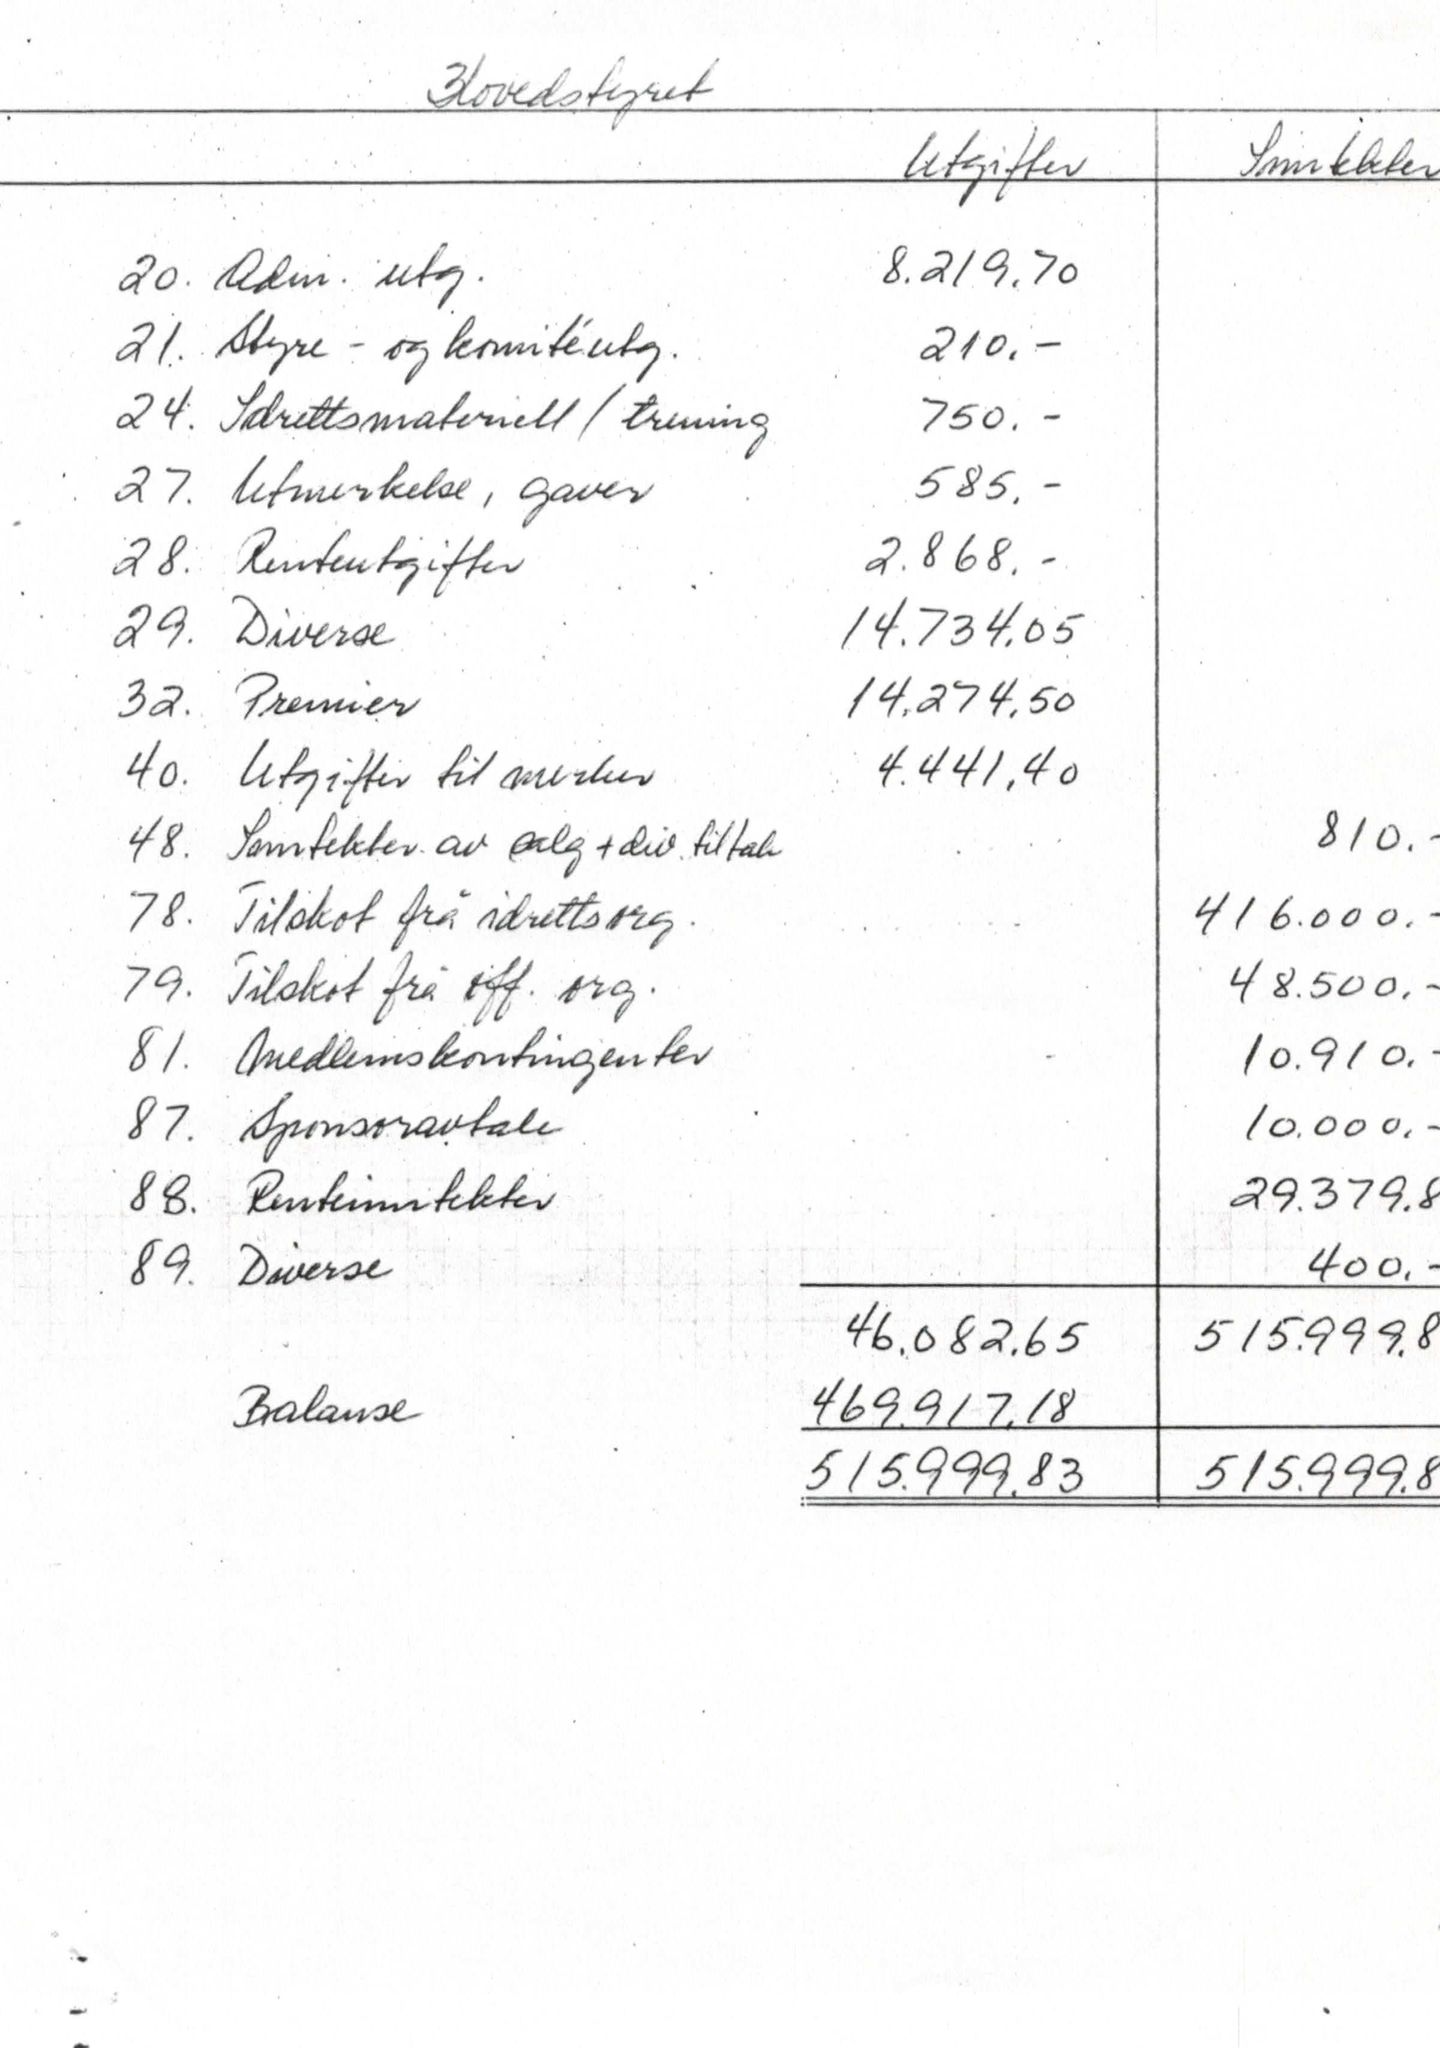 Hovedstyret
Utgifter Inntekter
20. Adm. utg. 8.219,70
21. Styre- og komitéutg. 210.-
24. Idrettsmateriell / trening 750.-
27. Utmerkelse, gaver 585.-
28. Renteutgifter 2.868.-
29. Diverse 14.734,05
32. Premier 14.274,50
40. Utgifter til merker 4.441,40
48. Inntekter av salg + div. tiltak 810.-
78. Tilskot frå idrettsorg. 416.000.-
79. Tilskot frå off. org. 48.500.-
81. Medlemskontingenter 10.910.-
87. Sponsoravtale 10.000.-
88. Renteinntekter 29.379,8
89. Diverse 400.-
46.082,65 515.999,8
Balanse 469.917,18
515.999,83 515.999,8